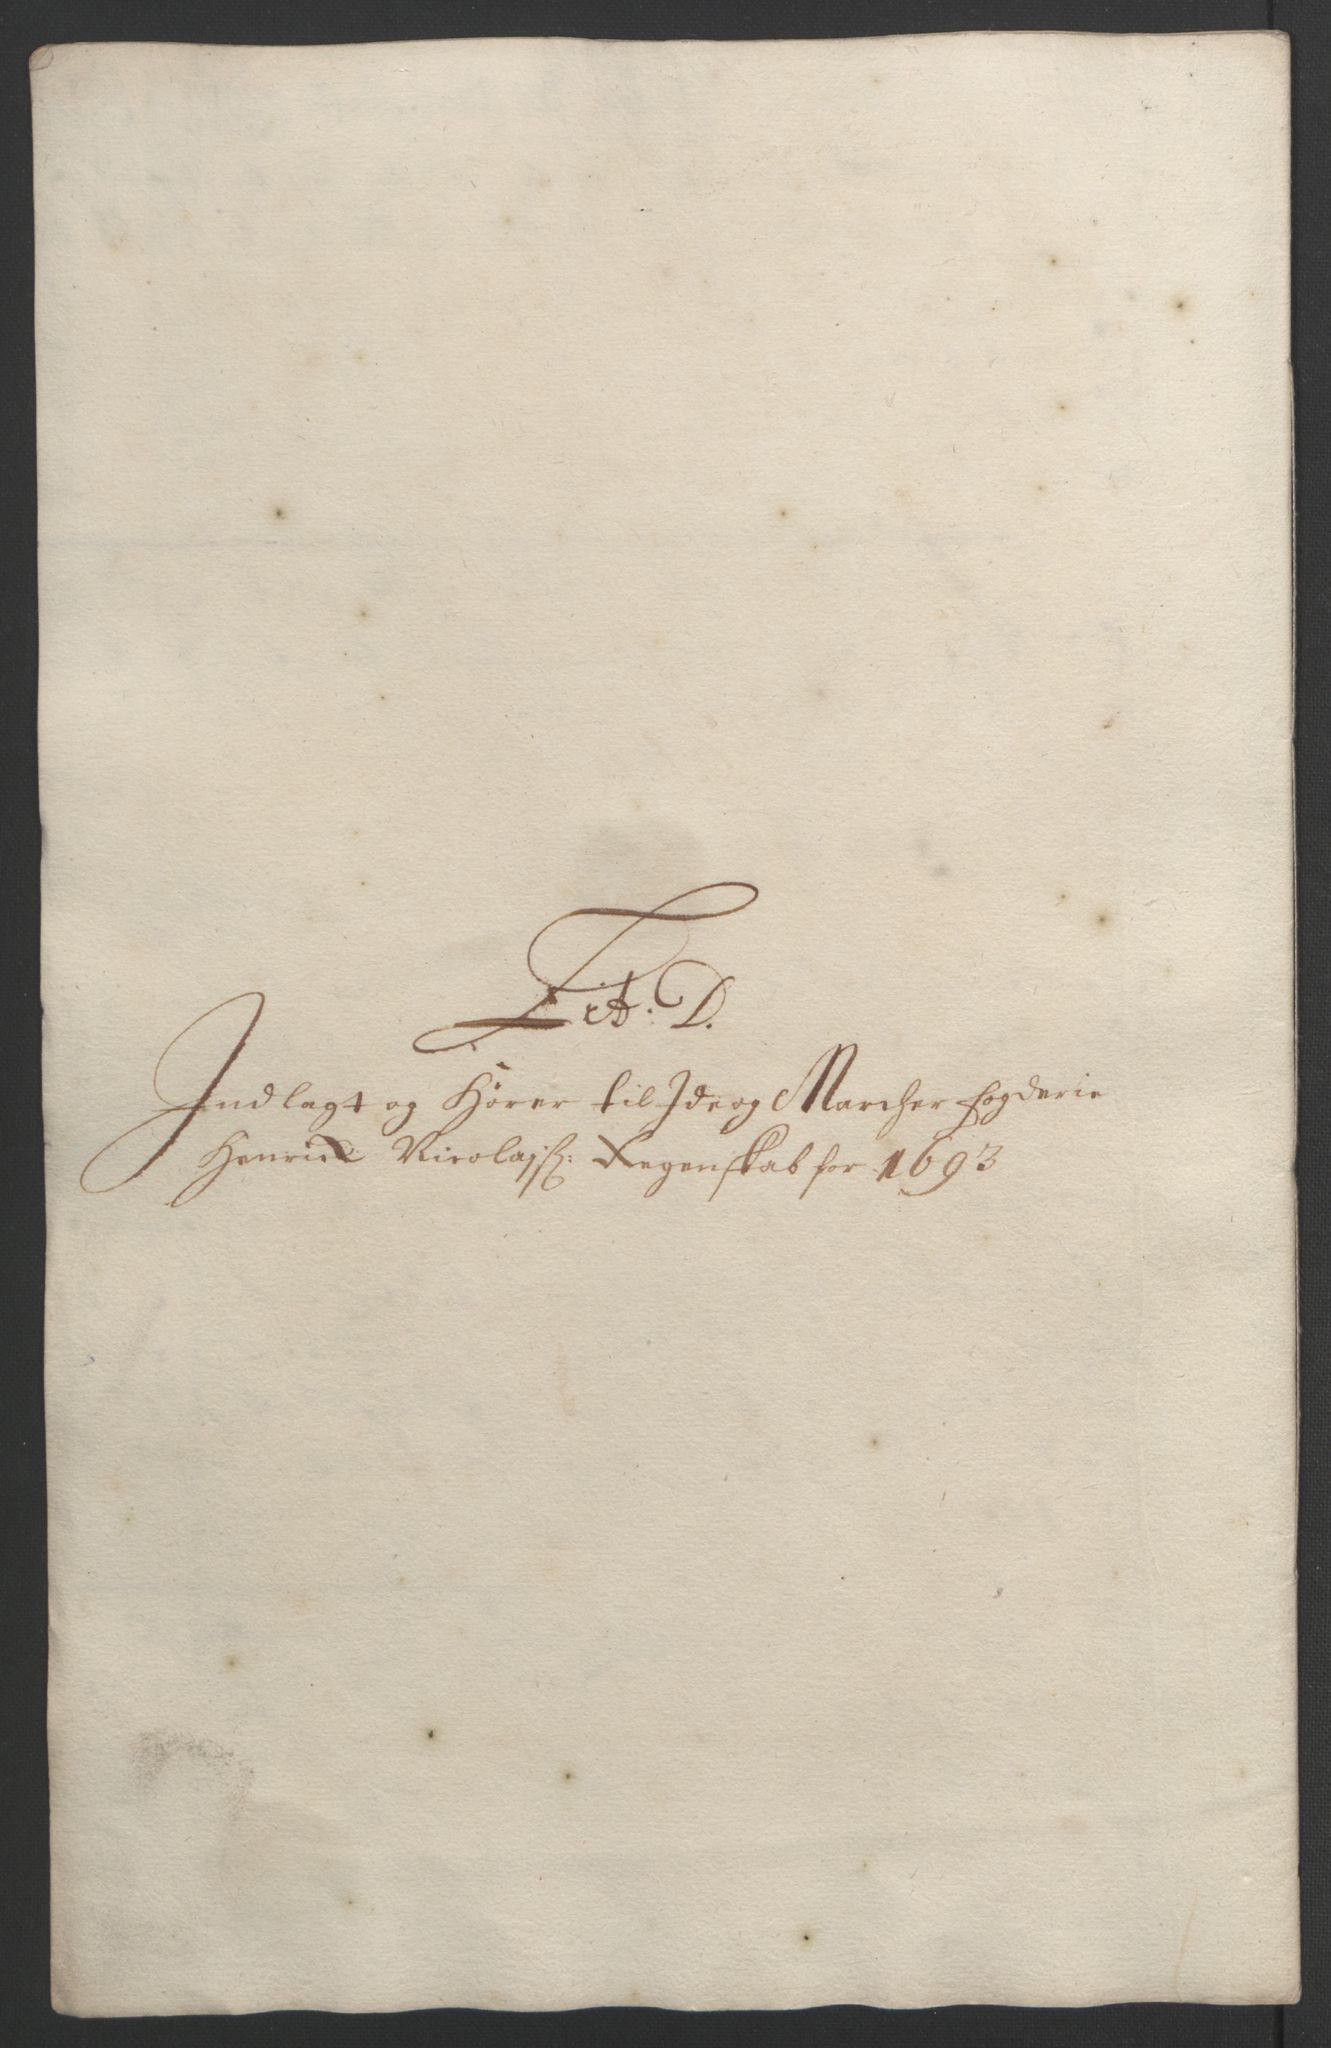 Lit. D.
Indlagt og Hører til Ide og Marcher fogderie
Henrich Nicolajss: Regenskab for 1693